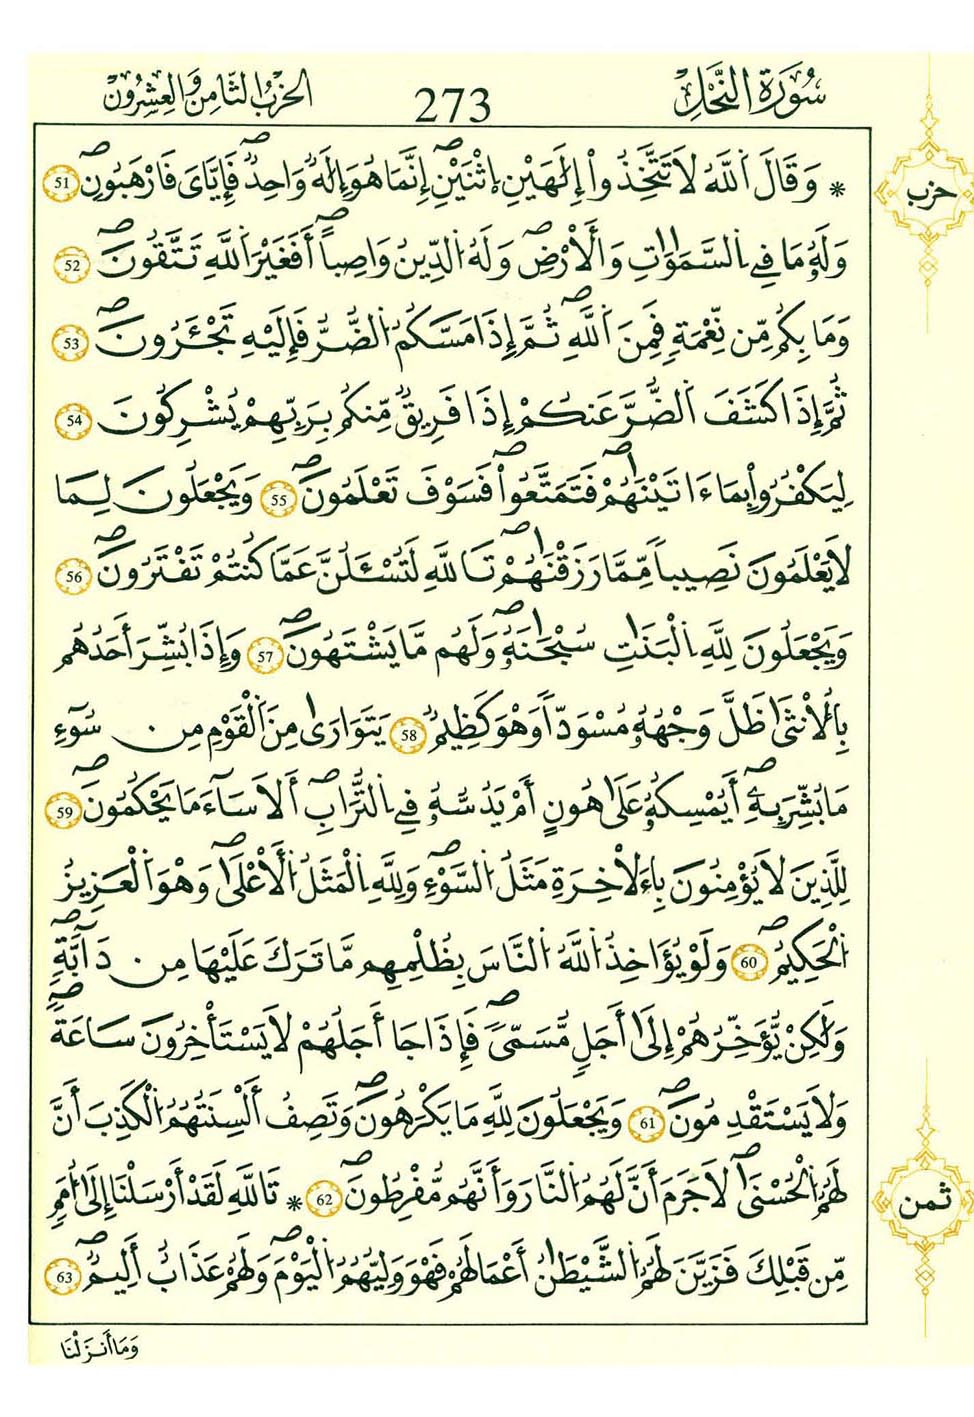 سُورَةُ النَّحْلِ 273 الحِزْبُ الثَّامِنُ وَالْعِشْرُونَ
* وَقَالَ اَ۬للَّهُ لَا تَتَّخِذُوٓاْ إِلَٰهَيْنِ اِ۪ثْنَيْنِۖ إِنَّمَا هُوَ إِلَٰهٞ وَٰحِدٞۖ فَإِيَّٰيَ فَارْهَبُونِۖ 51
حزب
وَلَهُۥ مَا فِے اِ۬لسَّمَٰوَٰتِ وَالْأَرْضِۖ وَلَهُ اُ۬لدِّينُ وَاصِباًۖ أَفَغَيْرَ اَ۬للَّهِ تَتَّقُونَۖ 52
وَمَا بِكُم مِّن نِّعْمَةٖ فَمِنَ اَ۬للَّهِۖ ثُمَّ إِذَا مَسَّكُمُ اُ۬لضُّرُّ فَإِلَيْهِ تَجْـَٔرُونَۖ 53
ثُمَّ إِذَا كَشَفَ اَ۬لضُّرَّ عَنكُمْ إِذَا فَرِيقٞ مِّنكُم بِرَبِّهِمْ يُشْرِكُونَ 54
لِيَكْفُرُواْ بِمَا ءَاتَيْنَٰهُمْۖ فَتَمَتَّعُواْۖ فَسَوْفَ تَعْلَمُونَۖ 55 وَيَجْعَلُونَ لِمَا
لَا يَعْلَمُونَ نَصِيباٗ مِّمَّا رَزَقْنَٰهُمْۖ تَاللَّهِ لَتُسْـَٔلُنَّ عَمَّا كُنتُمْ تَفْتَرُونَۖ 56
وَيَجْعَلُونَ لِلهِ اِ۬لْبَنَٰتِ سُبْحَٰنَهُۥۖ وَلَهُم مَّا يَشْتَهُونَۖ 57 وَإِذَا بُشِّرَ أَحَدُهُم
بِالْأُنثَىٰ ظَلَّ وَجْهُهُۥ مُسْوَدّاٗ وَهْوَ كَظِيمٞ 58 يَتَوَٰرَىٰ مِنَ اَ۬لْقَوْمِ مِن سُوٓءِ
مَا بُشِّرَ بِهِۦٓۖ أَيُمْسِكُهُۥ عَلَىٰ هُونٍ أَمْ يَدُسُّهُۥ فِے اِ۬لتُّرَابِۖ أَلَا سَآءَ مَا يَحْكُمُونَۖ 59
لِلَّذِينَ لَا يُؤْمِنُونَ بِالْأٓخِرَةِ مَثَلُ اُ۬لسَّوْءِۖ وَلِلهِ اِ۬لْمَثَلُ اُ۬لْأَعْلَىٰۖ وَهْوَ اَ۬لْعَزِيزُ
اُ۬لْحَكِيمُۖ 60 وَلَوْ يُؤَاخِذُ اُ۬للَّهُ اُ۬لنَّاسَ بِظُلْمِهِم مَّا تَرَكَ عَلَيْهَا مِن دَآبَّةٖۖ
وَلَٰكِنْ يُّؤَخِّرُهُمْ إِلَىٰ أَجَلٖ مُّسَمّىٗۖ فَإِذَا جَا أَجَلُهُمْ لَا يَسْتَأْخِرُونَ سَاعَةٗۖ
وَلَا يَسْتَقْدِمُونَۖ 61 وَيَجْعَلُونَ لِلهِ مَا يَكْرَهُونَۖ وَتَصِفُ أَلْسِنَتُهُمُ اُ۬لْكَذِبَ أَنَّ
لَهُمُ اُ۬لْحُسْنَىٰۖ لَا جَرَمَ أَنَّ لَهُمُ اُ۬لنَّارَ وَأَنَّهُم مُّفْرِطُونَۖ 62 * تَاللَّهِ لَقَدْ أَرْسَلْنَا إِلَىٰ أُمَمٖ
ثمن
مِّن قَبْلِكَ فَزَيَّنَ لَهُمُ اُ۬لشَّيْطَٰنُ أَعْمَالَهُمْ فَهْوَ وَلِيُّهُمُ اُ۬لْيَوْمَۖ وَلَهُمْ عَذَابٌ أَلِيمٞۖ 63
وَمَا أَنزَلْنَا